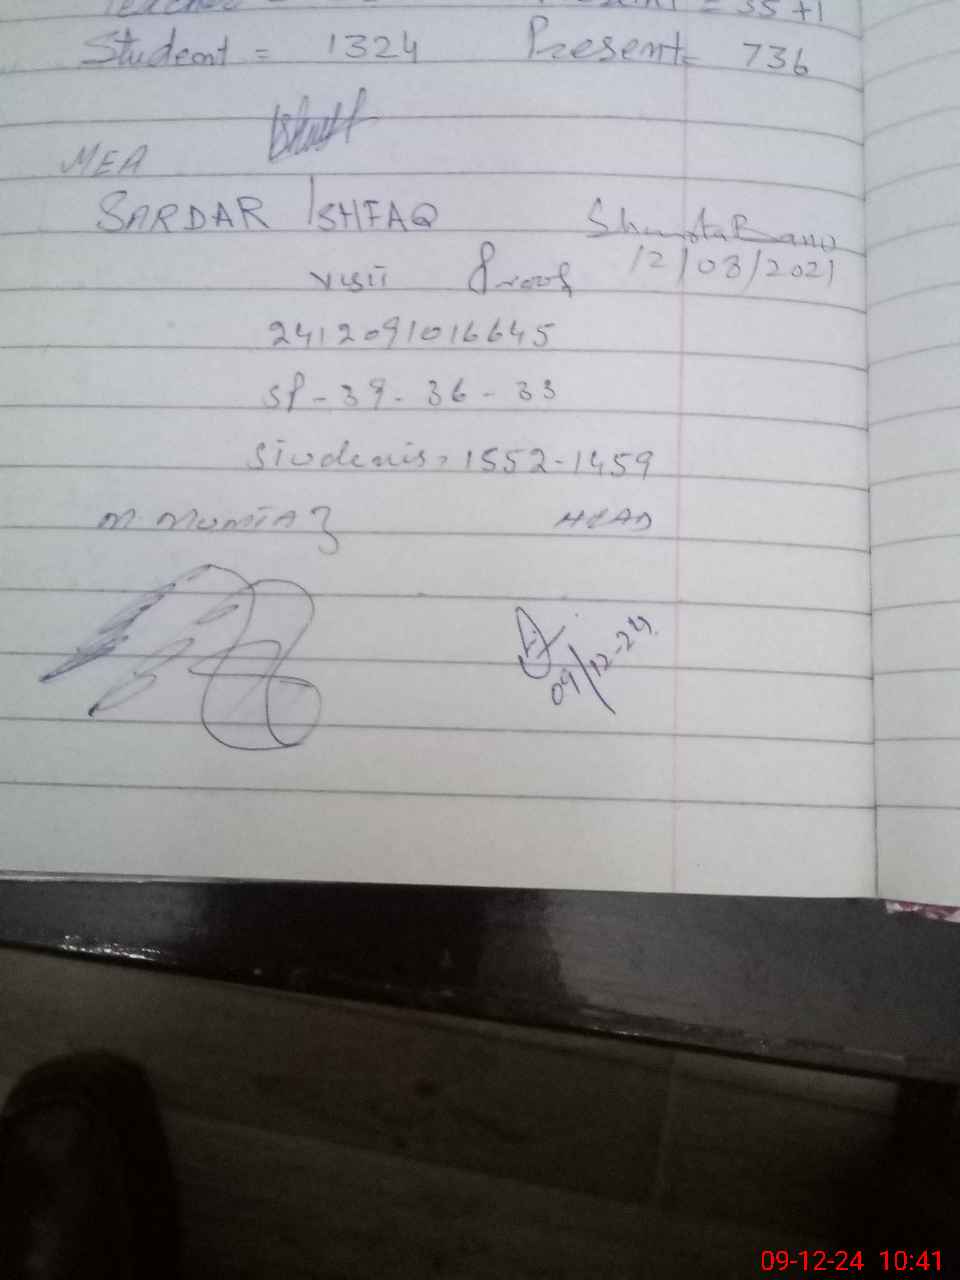 = 35+1
Student = 1324 Present = 736
MEA
SARDAR ISHFAQ
12/08/2021
visit Proof
2412091016645
SP-39-36-33
Students, 1552-1459
M MUMTAZ HEAD
09/12-24
09-12-24 10:41